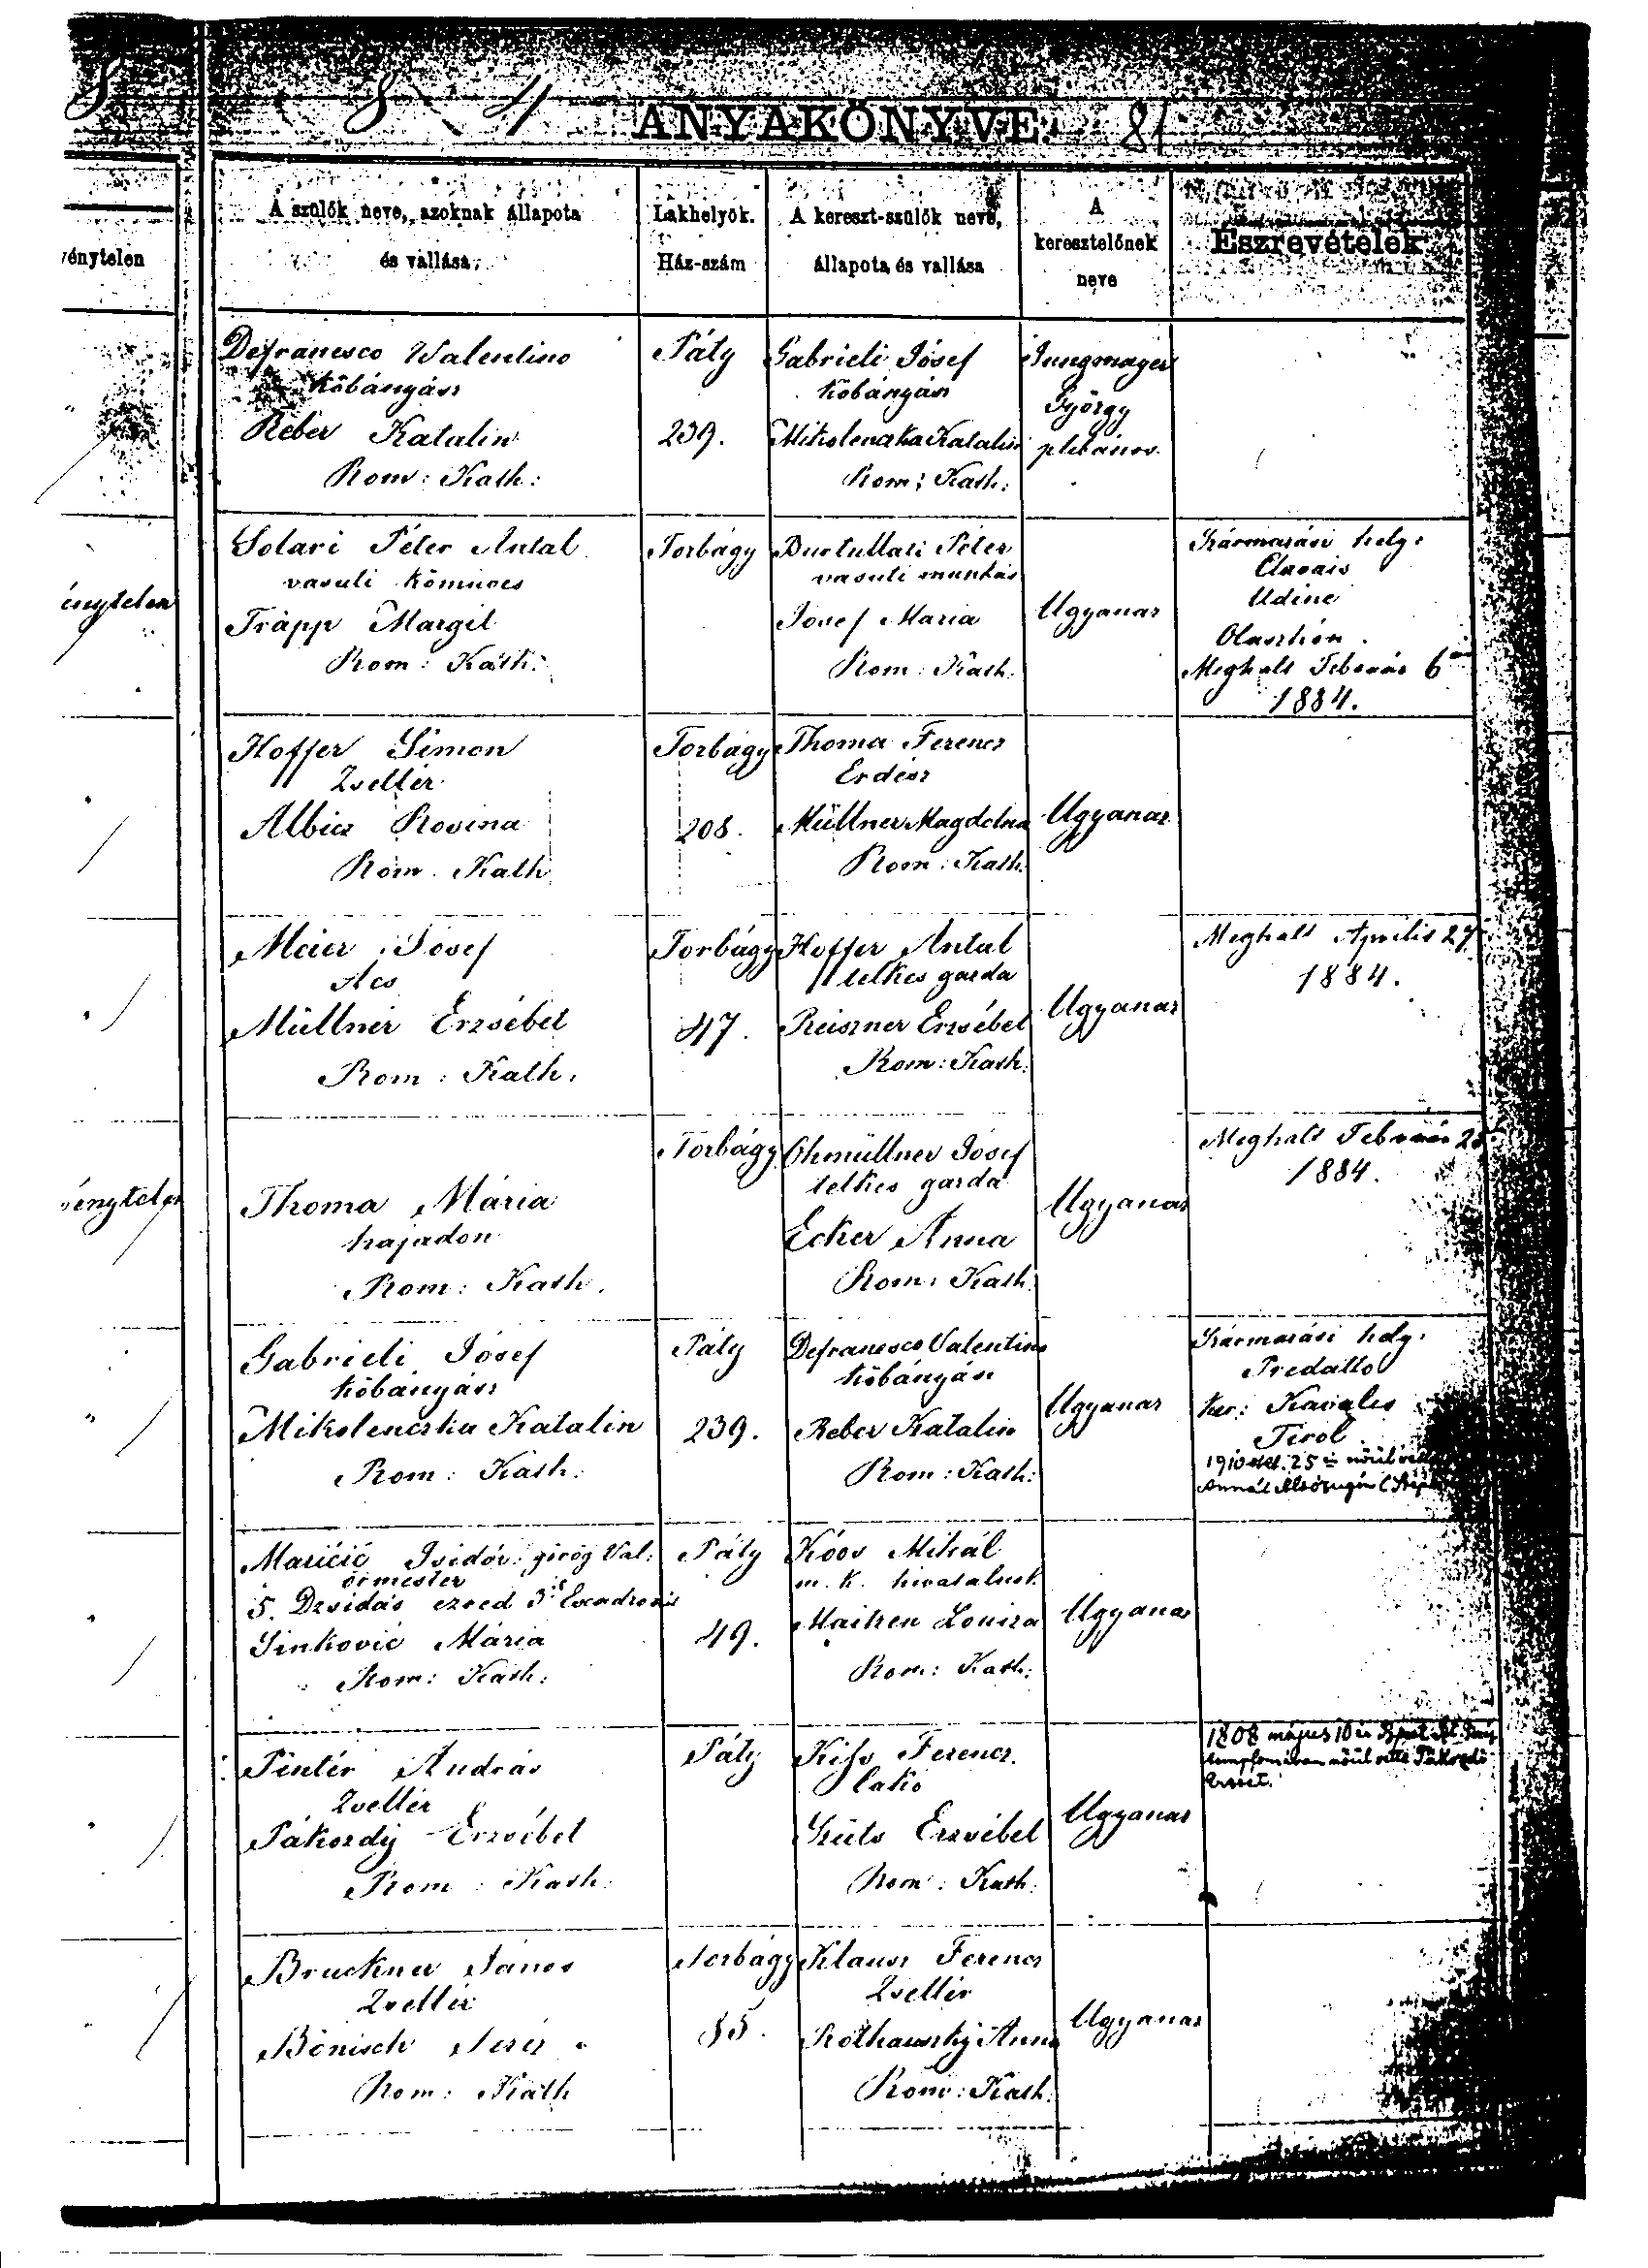 1 8 8 4
ANYAKÖNYVE. 81
vénytelen
A szülők neve, azoknak állapota
és vallása.
Lakhelyök.
Ház-szám
A kereszt-szülők neve,
állapota és vallása
A
keresztelőnek
neve
Észrevételek
Defranesco Valentino
kőbányász
Reber Katalin
Rom: Kath:
Páty
239.
Gabrieli Jósef
kőbányász
Mikolenczka Katalin
Rom: Kath:
Jungmayer
György
plébános.
énytelen
Solari Péter Antal
vasuti kőmüves
Trapp Margit
Rom: Kath:
Torbágy
Burtullati Péter
vasuti munkás
Josef Maria
Rom: Kath:
Ugyanaz
Származási hely:
Clavais
Udine
Olaszhon.
Meghalt Február 6
1884.
Hoffer Simon
Zsellér
Albicz Rosina
Rom. Kath
Torbágy
208.
Thoma Ferencz
Erdész
Müllner Magdolna
Rom: Kath.
Ugyanaz
Meier Josef
Acs
Müllner Erzsébet
Rom: Kath.
Torbágy
47.
Hoffer Antal
telkes gazda
Reiszner Erzsébet
Rom: Kath.
Ugyanaz
Meghalt Aprilis 27
1884.
vénytelen
Thoma Mária
hajadon
Rom: Kath.
Torbágy
Ohmüllner Jósef
telkes gazda
Ecker Anna
Rom: Kath.
Ugyanaz
Meghalt Február 25
1884.
Gabrieli Jósef
kőbányász
Mikolenczka Katalin
Rom: Kath:
Páty
239.
Defranesco Valentino
kőbányász
Reber Katalin
Rom: Kath:
Ugyanaz
Származási hely:
Predazzo
ker: Kavales
Tirol
1910 25 én nőül
Annát
Maričić Isidór: görög Val:
őrmester
5. Dzsidás ezred 3ik Escadronis
Sinković Mária
Rom: Kath:
Páty
49.
Kóos Mihál
m. k. hivatalnok
Maitzen Louiza
Rom: Kath:
Ugyanaz
Pintér András
Zsellér
Pákozdÿ Erzsébet
Rom: Kath:
Páty
Kiss Ferencz.
lakó
Szüts Erzsébet
Rom: Kath:
Ugyanaz
1808 május 10 én
templomában nőül vette Pákozdi
Erzsét.
Bruckner János
Zsellér
Bönisch Teréz
Rom: Kath
Torbágy
85.
Klausz Ferencz
Zsellér
Rothauszky Anna
Rom: Kath.
Ugyanaz